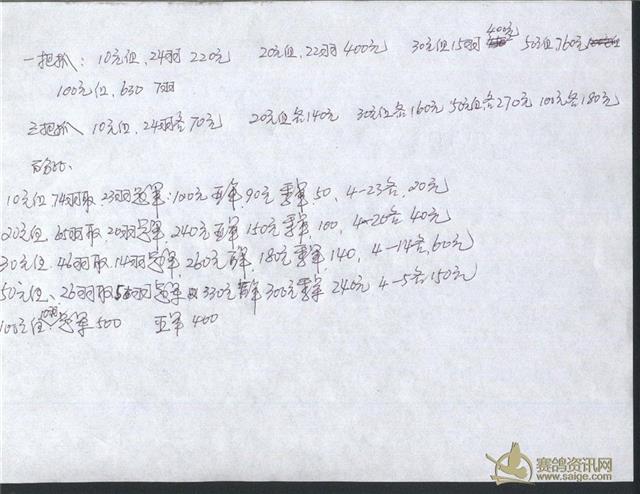 一把抓: 10元位, 24羽 220元 20元位, 22羽 400元 30元位15羽 400元 50元位 760元
100元位, 630 7羽
三把抓 10元位, 24羽各70元 20元位各140元 30元位各160元 50元位各270元 100元各180元
百分比、
10元位 74羽取 23羽冠军: 100元 亚军 90元 季军 50, 4-23各, 20元
20元位 65羽取, 20羽冠军, 240元 亚军 150元 季军 100, 4-20各 40元
30元位. 46羽取. 14羽冠军, 260元 亚军, 180元 季军, 140, 4-14各, 60元
50元位、26羽取 5羽冠军 330元 亚军 300元 季军 240元 4-5各 150元
100元位: 冠军 500 亚军 400
赛鸽资讯网
www.saige.com